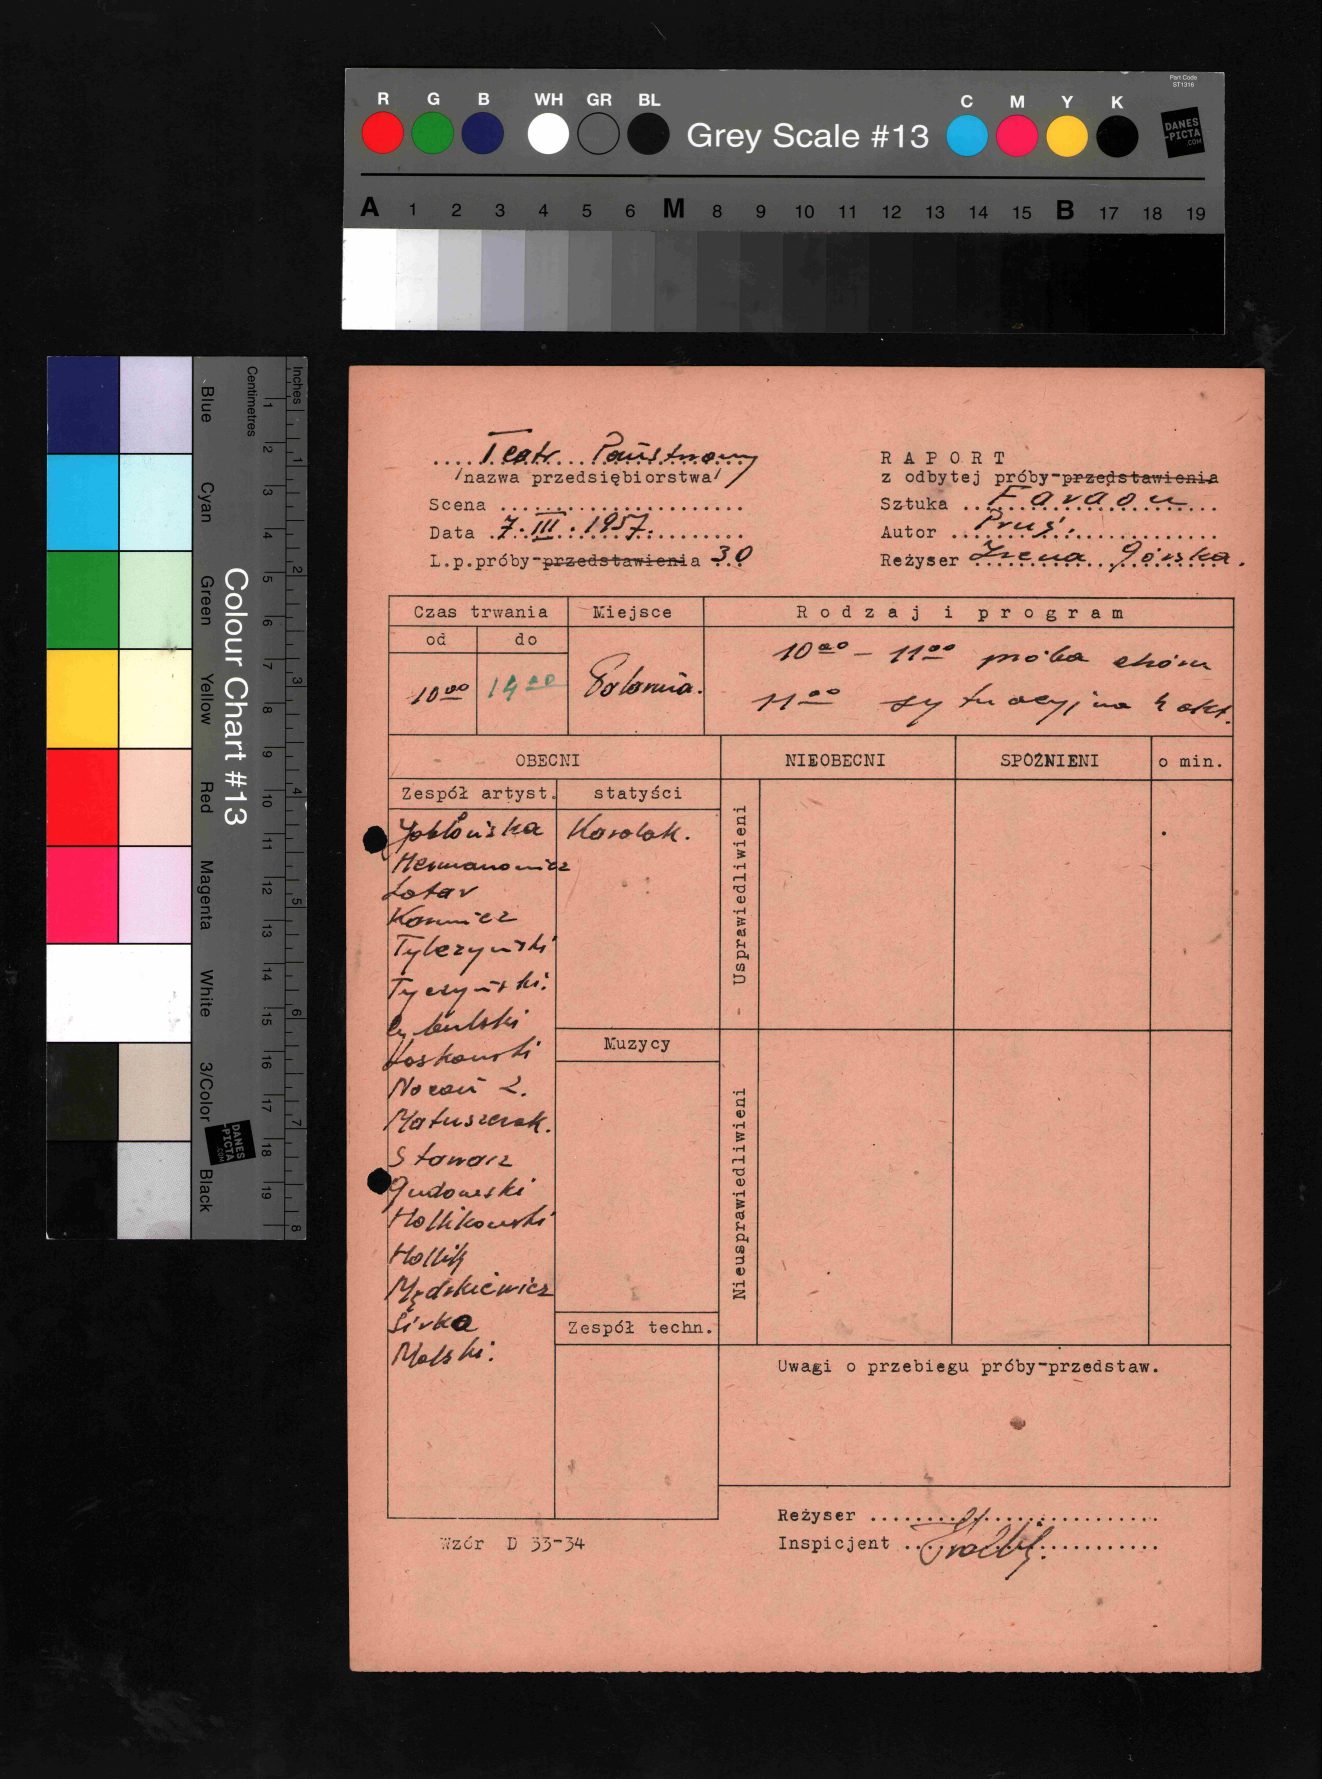 Part Code
ST1316
R G B WH GR BL Grey Scale #13 C M Y K
DANES
-PICTA
.COM
A 1 2 3 4 5 6 M 8 9 10 11 12 13 14 15 B 17 18 19
Colour Chart #13
Blue Cyan Green Yellow Red Magenta White 3/Color Black
Centimetres
1 2 3 4 5 6 7 8 9 10 11 12 13 14 15 16 17 18 19
Inches
1 2 3 4 5 6 7 8
DANES
-PICTA
.COM
Teatr Państwowy
/nazwa przedsiębiorstwa/
Scena
Data 7.III.1957.
L.p.próby-przedstawienia 30
RAPORT
z odbytej próby-przedstawienia
Sztuka Faraon
Autor Prus.
Reżyser Irena Górska.
Czas trwania Miejsce Rodzaj i program
od do
10°° 14°° 10°° - 11°° próba chóru
11°° sytuacyjna 4 akt.
OBECNI NIEOBECNI SPÓŹNIENI o min.
Zespół artyst. statyści
Jabłońska Karolak.
Hermanowicz
Lotar
Tylczyński
Tyczyński.
Cybulski
Koskowski
Nocoń L.
Matuszczak.
Stawarz
Gudowski
Hollikowski
Mędrkiewicz
Sirka
Molski.
Usprawiedliwieni
Muzycy
Nieusprawiedliwieni
Zespół techn.
Uwagi o przebiegu próby-przedstaw.
Reżyser
Inspicjent
Wzór D 33-34